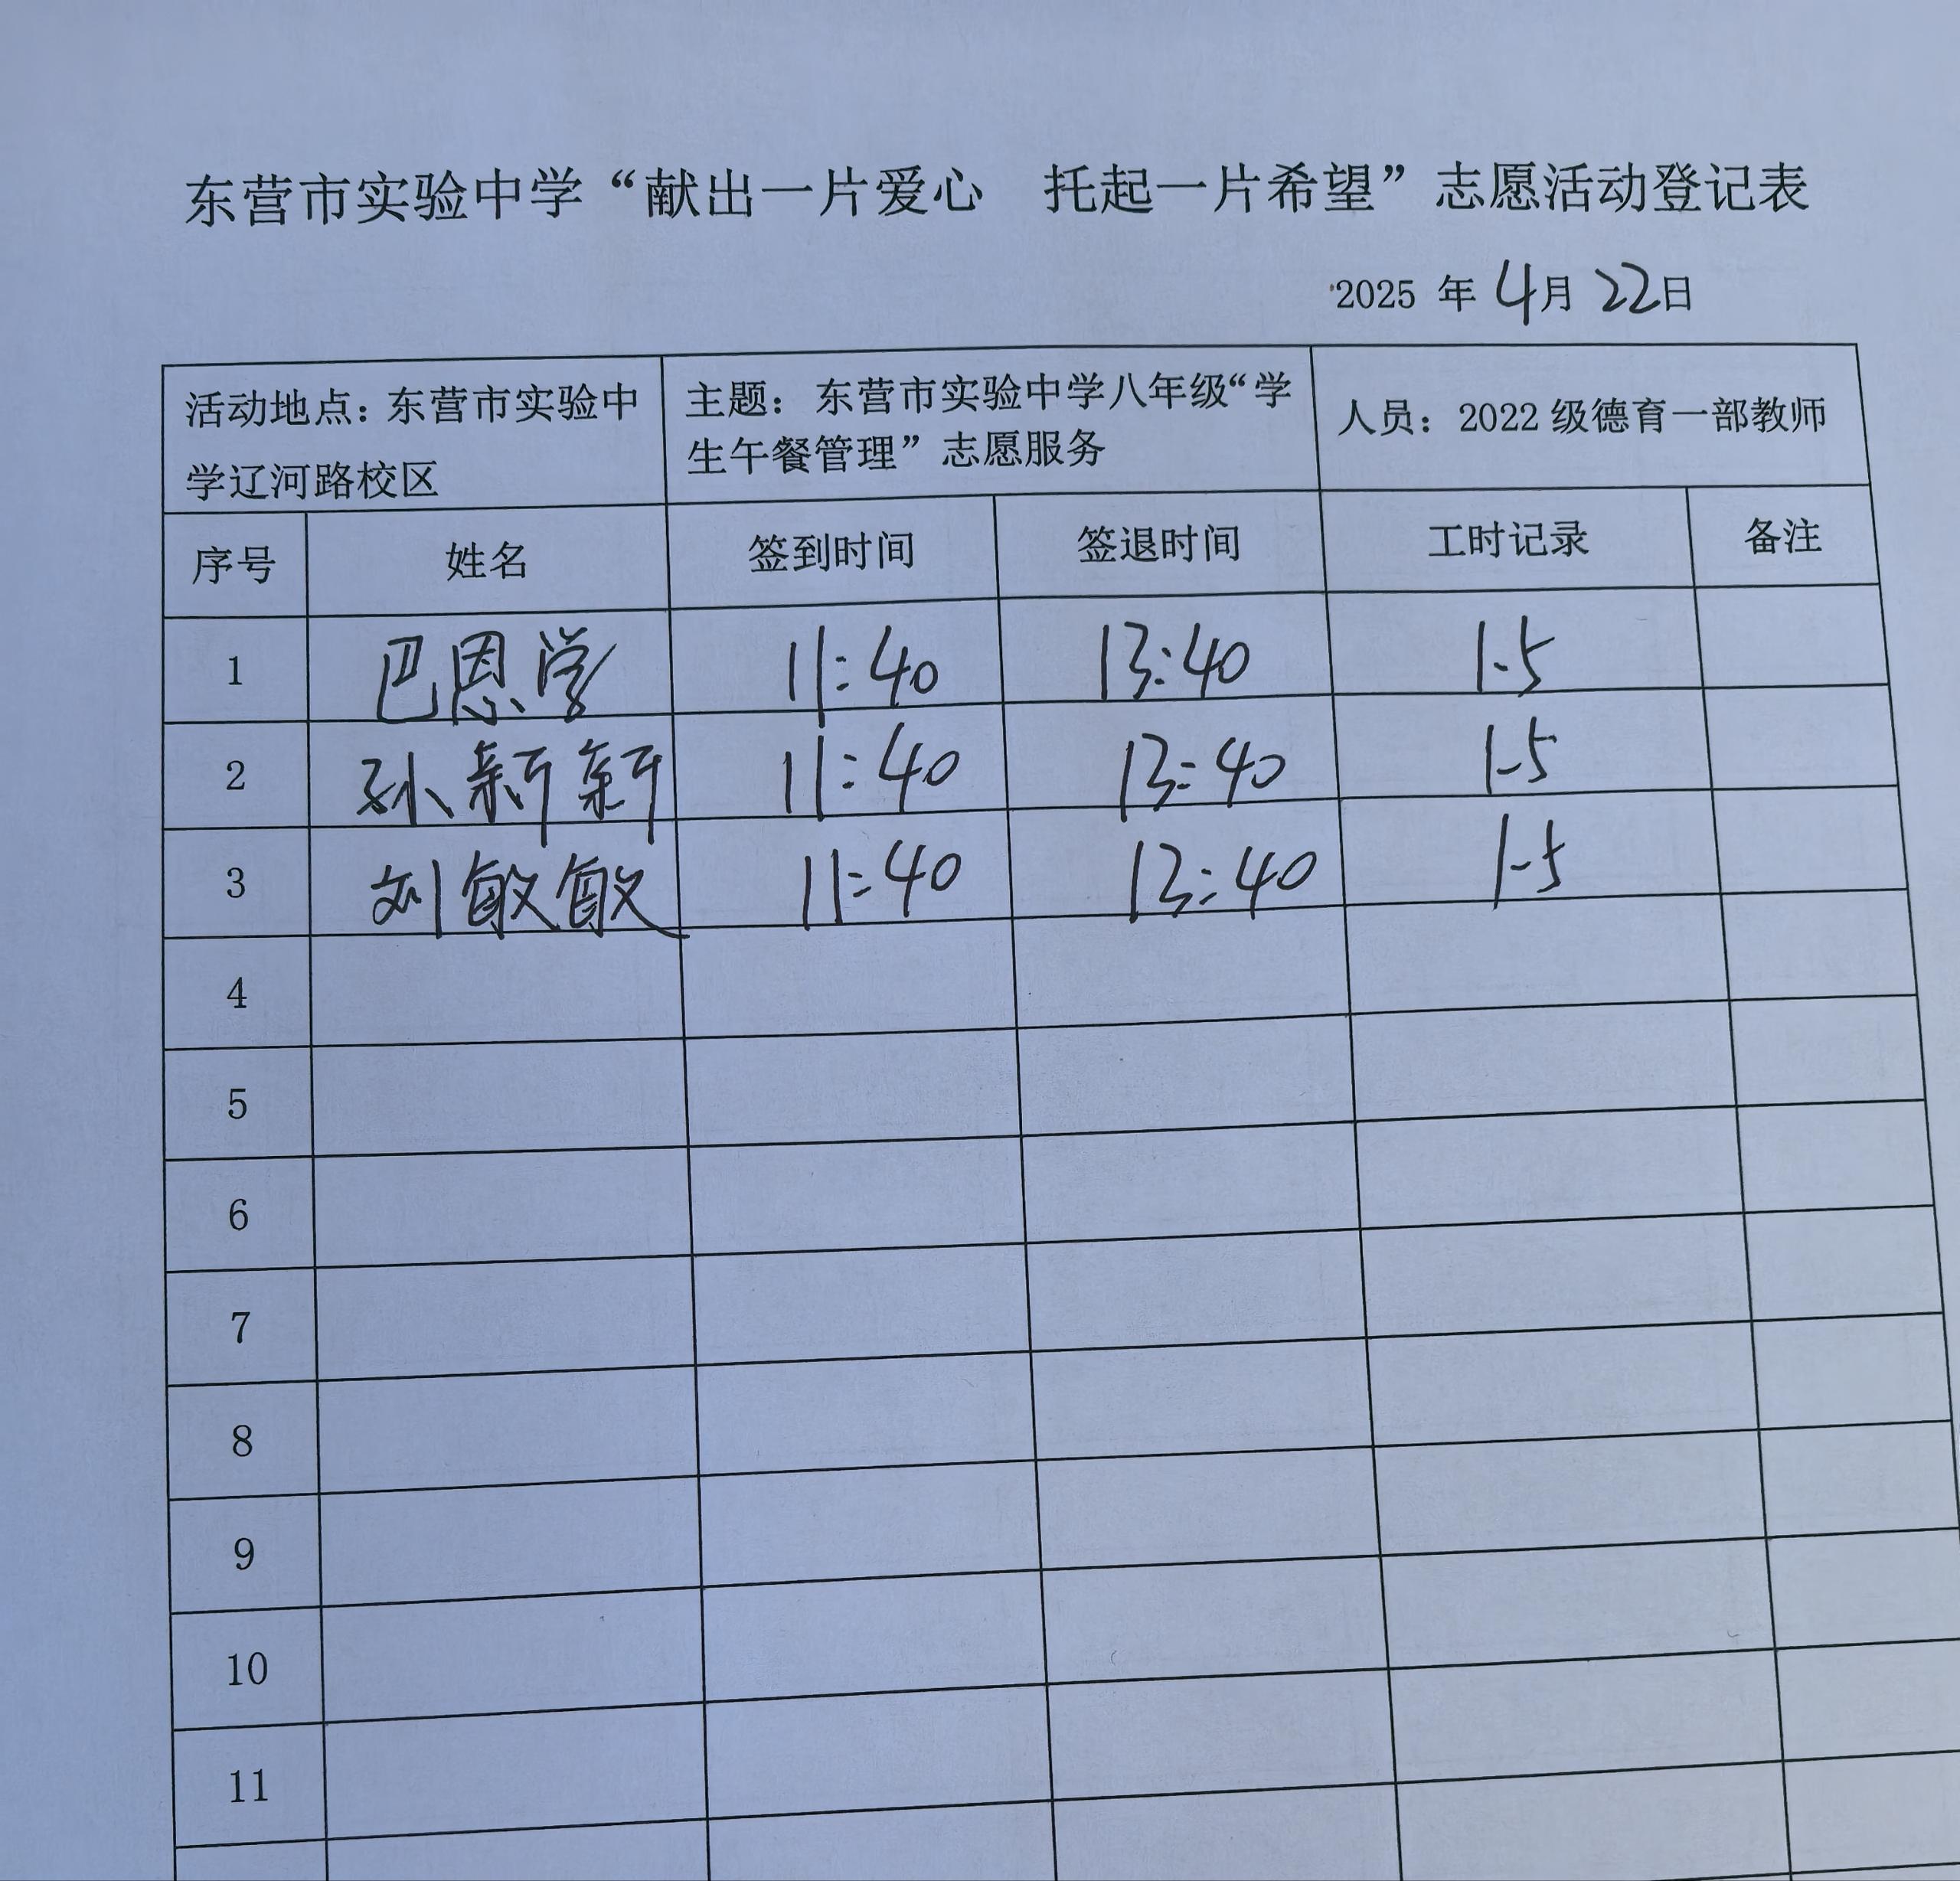 东营市实验中学“献出一片爱心 托起一片希望”志愿活动登记表
2025 年 4月 22日
活动地点：东营市实验中
学辽河路校区
主题：东营市实验中学八年级“学
生午餐管理”志愿服务
人员：2022 级德育一部教师
序号 姓名 签到时间 签退时间 工时记录 备注
1 巴恩学 11:40 13:40 1.5
2 孙新新 11:40 13:40 1.5
3 刘敏敏 11:40 13:40 1.5
4
5
6
7
8
9
10
11